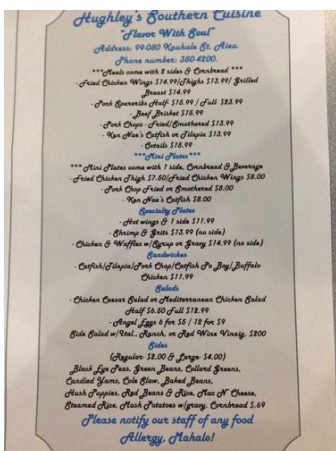 Hughley's Southern Cuisine
"Flavor With Soul"
Address: 99-080 Kauhale St. Aiea.
Phone number: 380-4200.
***Meals come with 2 sides & Cornbread ***
-Fried Chicken Wings $14.99/Thighs $13.99/ Grilled
Breast $14.99
- Pork Spareribs Half- $15.99 / Full- $23.99
- Beef Brisket $15.99
- Pork Chops - Fried/Smothered $13.99
- Ken Nae's Catfish or Tilapia $13.99
- Oxtails $15.99
***Mini Plates***
*** Mini Plates come with 1 side, Cornbread & Beverage
-Fried Chicken Thigh $7.50/Fried Chicken Wings $8.00
- Pork Chop Fried or Smothered $8.00
- Ken Nae's Catfish $8.00
Specialty Plates
- Hot wings & 1 side $11.99
- Shrimp & Grits $13.99 (no side)
- Chicken & Waffles w/Syrup or Gravy $14.99 (no side)
Sandwiches
- Catfish/Tilapia/Pork Chop/Catfish Po Boy/Buffalo
Chicken $11.99
Salads
- Chicken Caesar Salad or Mediterranean Chicken Salad
Half $6.50 Full $12.99
- Angel Eggs 6 for $5 / 12 for $9
Side Salad w/Ital., Ranch, or Red Wine Vinaig. $200
Sides
(Regular- $2.00 & Large- $4.00)
Black Eye Peas, Green Beans, Collard Greens,
Candied Yams, Cole Slaw, Baked Beans,
Hush Puppies, Red Beans & Rice, Mac N Cheese,
Steamed Rice, Mash Potatoes w/gravy, Cornbread $.69
Please notify our staff of any food
Allergy, Mahalo!